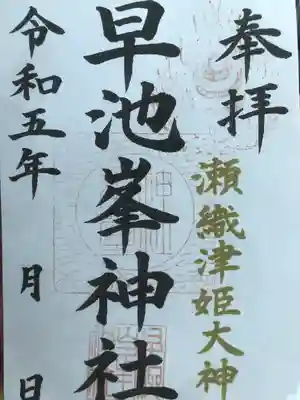 奉拝
瀬織津姫大神
早池峯神社
令和五年 月 日